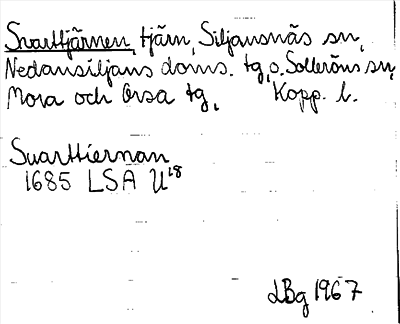 Svarttjärnen, tjärn, Siljansnäs sn,
Nedansiljans doms. tg, o. Solleröns sn,
Mora och Orsa tg, Kopp. l.
Svarttiernan
1685 LSA U18
LBg 1967